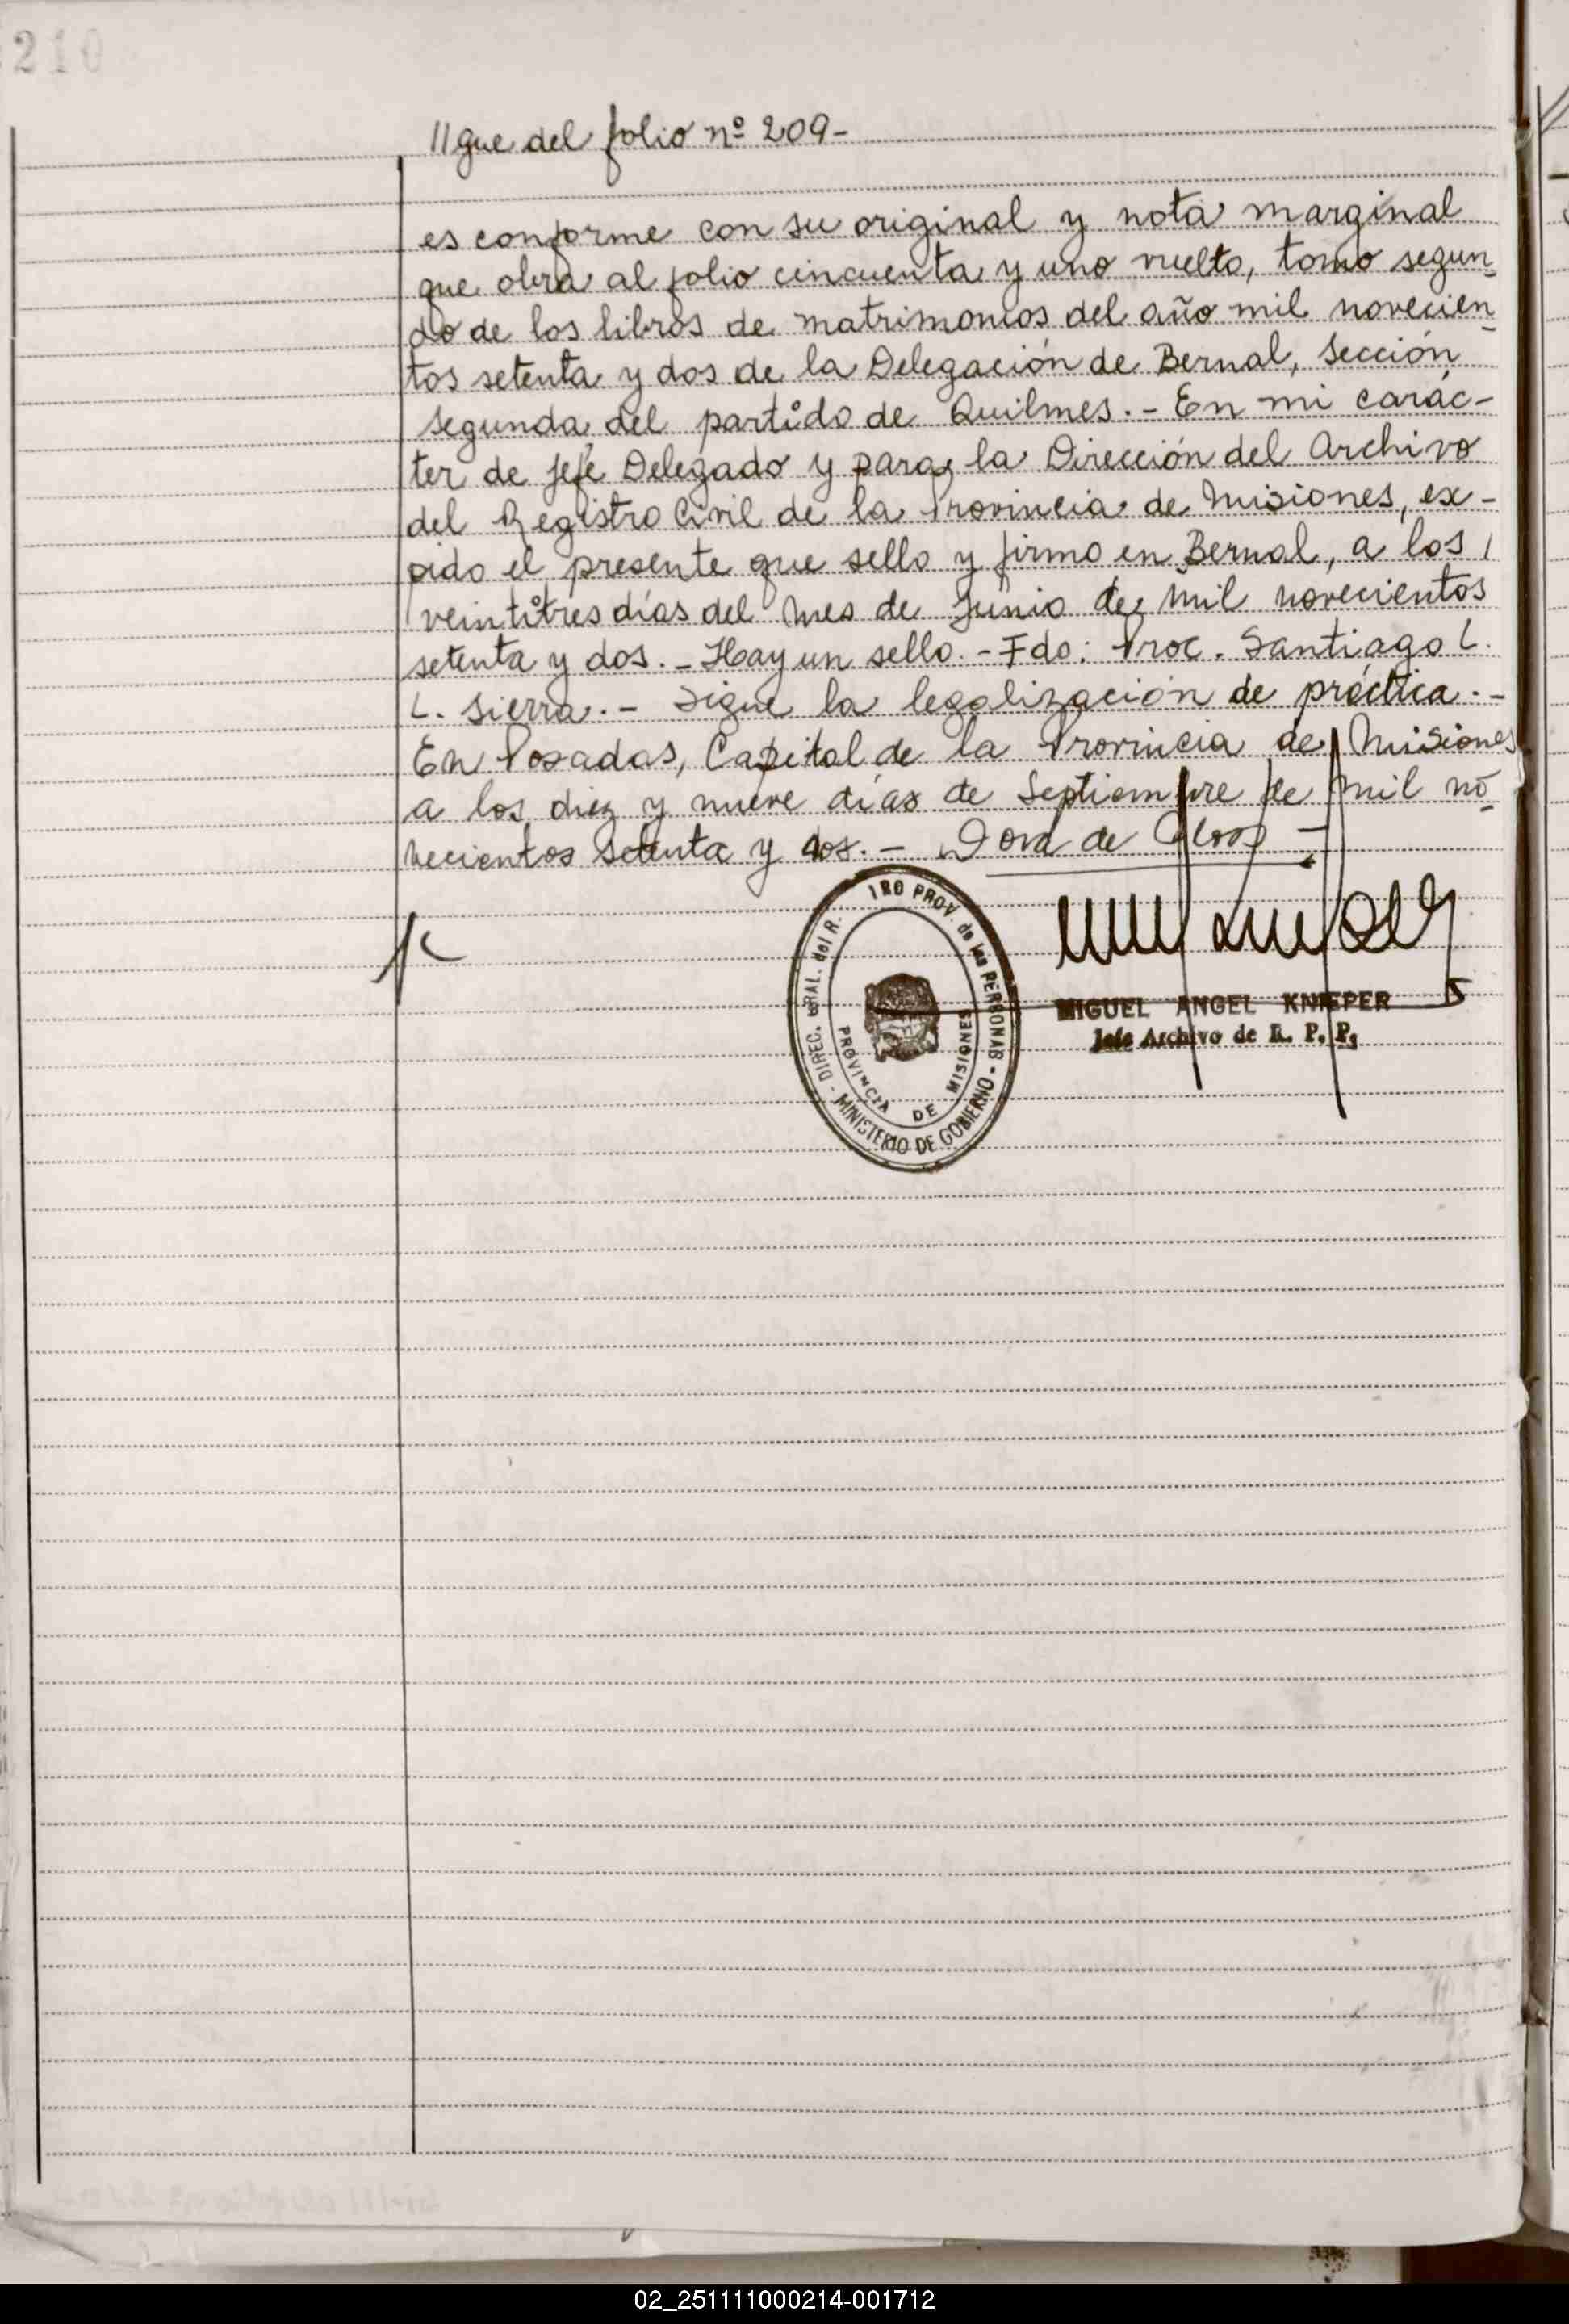 210
//gue del folio nº 209-
es conforme con su original y nota marginal
que obra al folio cincuenta y uno vuelto, tomo segun-
do de los libros de matrimonios del año mil novecien-
tos setenta y dos de la Delegación de Bernal, Sección
segunda del partido de Quilmes.- En mi carác-
ter de Jefe Delegado y para la Dirección del Archivo
del Registro Civil de la Provincia de Misiones, ex-
pido el presente que sello y firmo en Bernal, a los /
veintitres días del mes de Junio de mil novecientos
setenta y dos.- Hay un sello.- Fdo: Proc. Santiago L.
L. Sierra.- Sigue la legalización de práctica.-
En Posadas, Capital de la Provincia de Misiones
a los diez y nueve días de Septiembre de mil no-
vecientos setenta y dos.- Dora de
DIREC. GRAL. del R. PROV. de las PERSONAS - MINISTERIO DE GOBIERNO -
PROVINCIA DE MISIONES
MIGUEL ANGEL KNIEPER
Jefe Archivo de R. P. P.
02_251111000214-001712